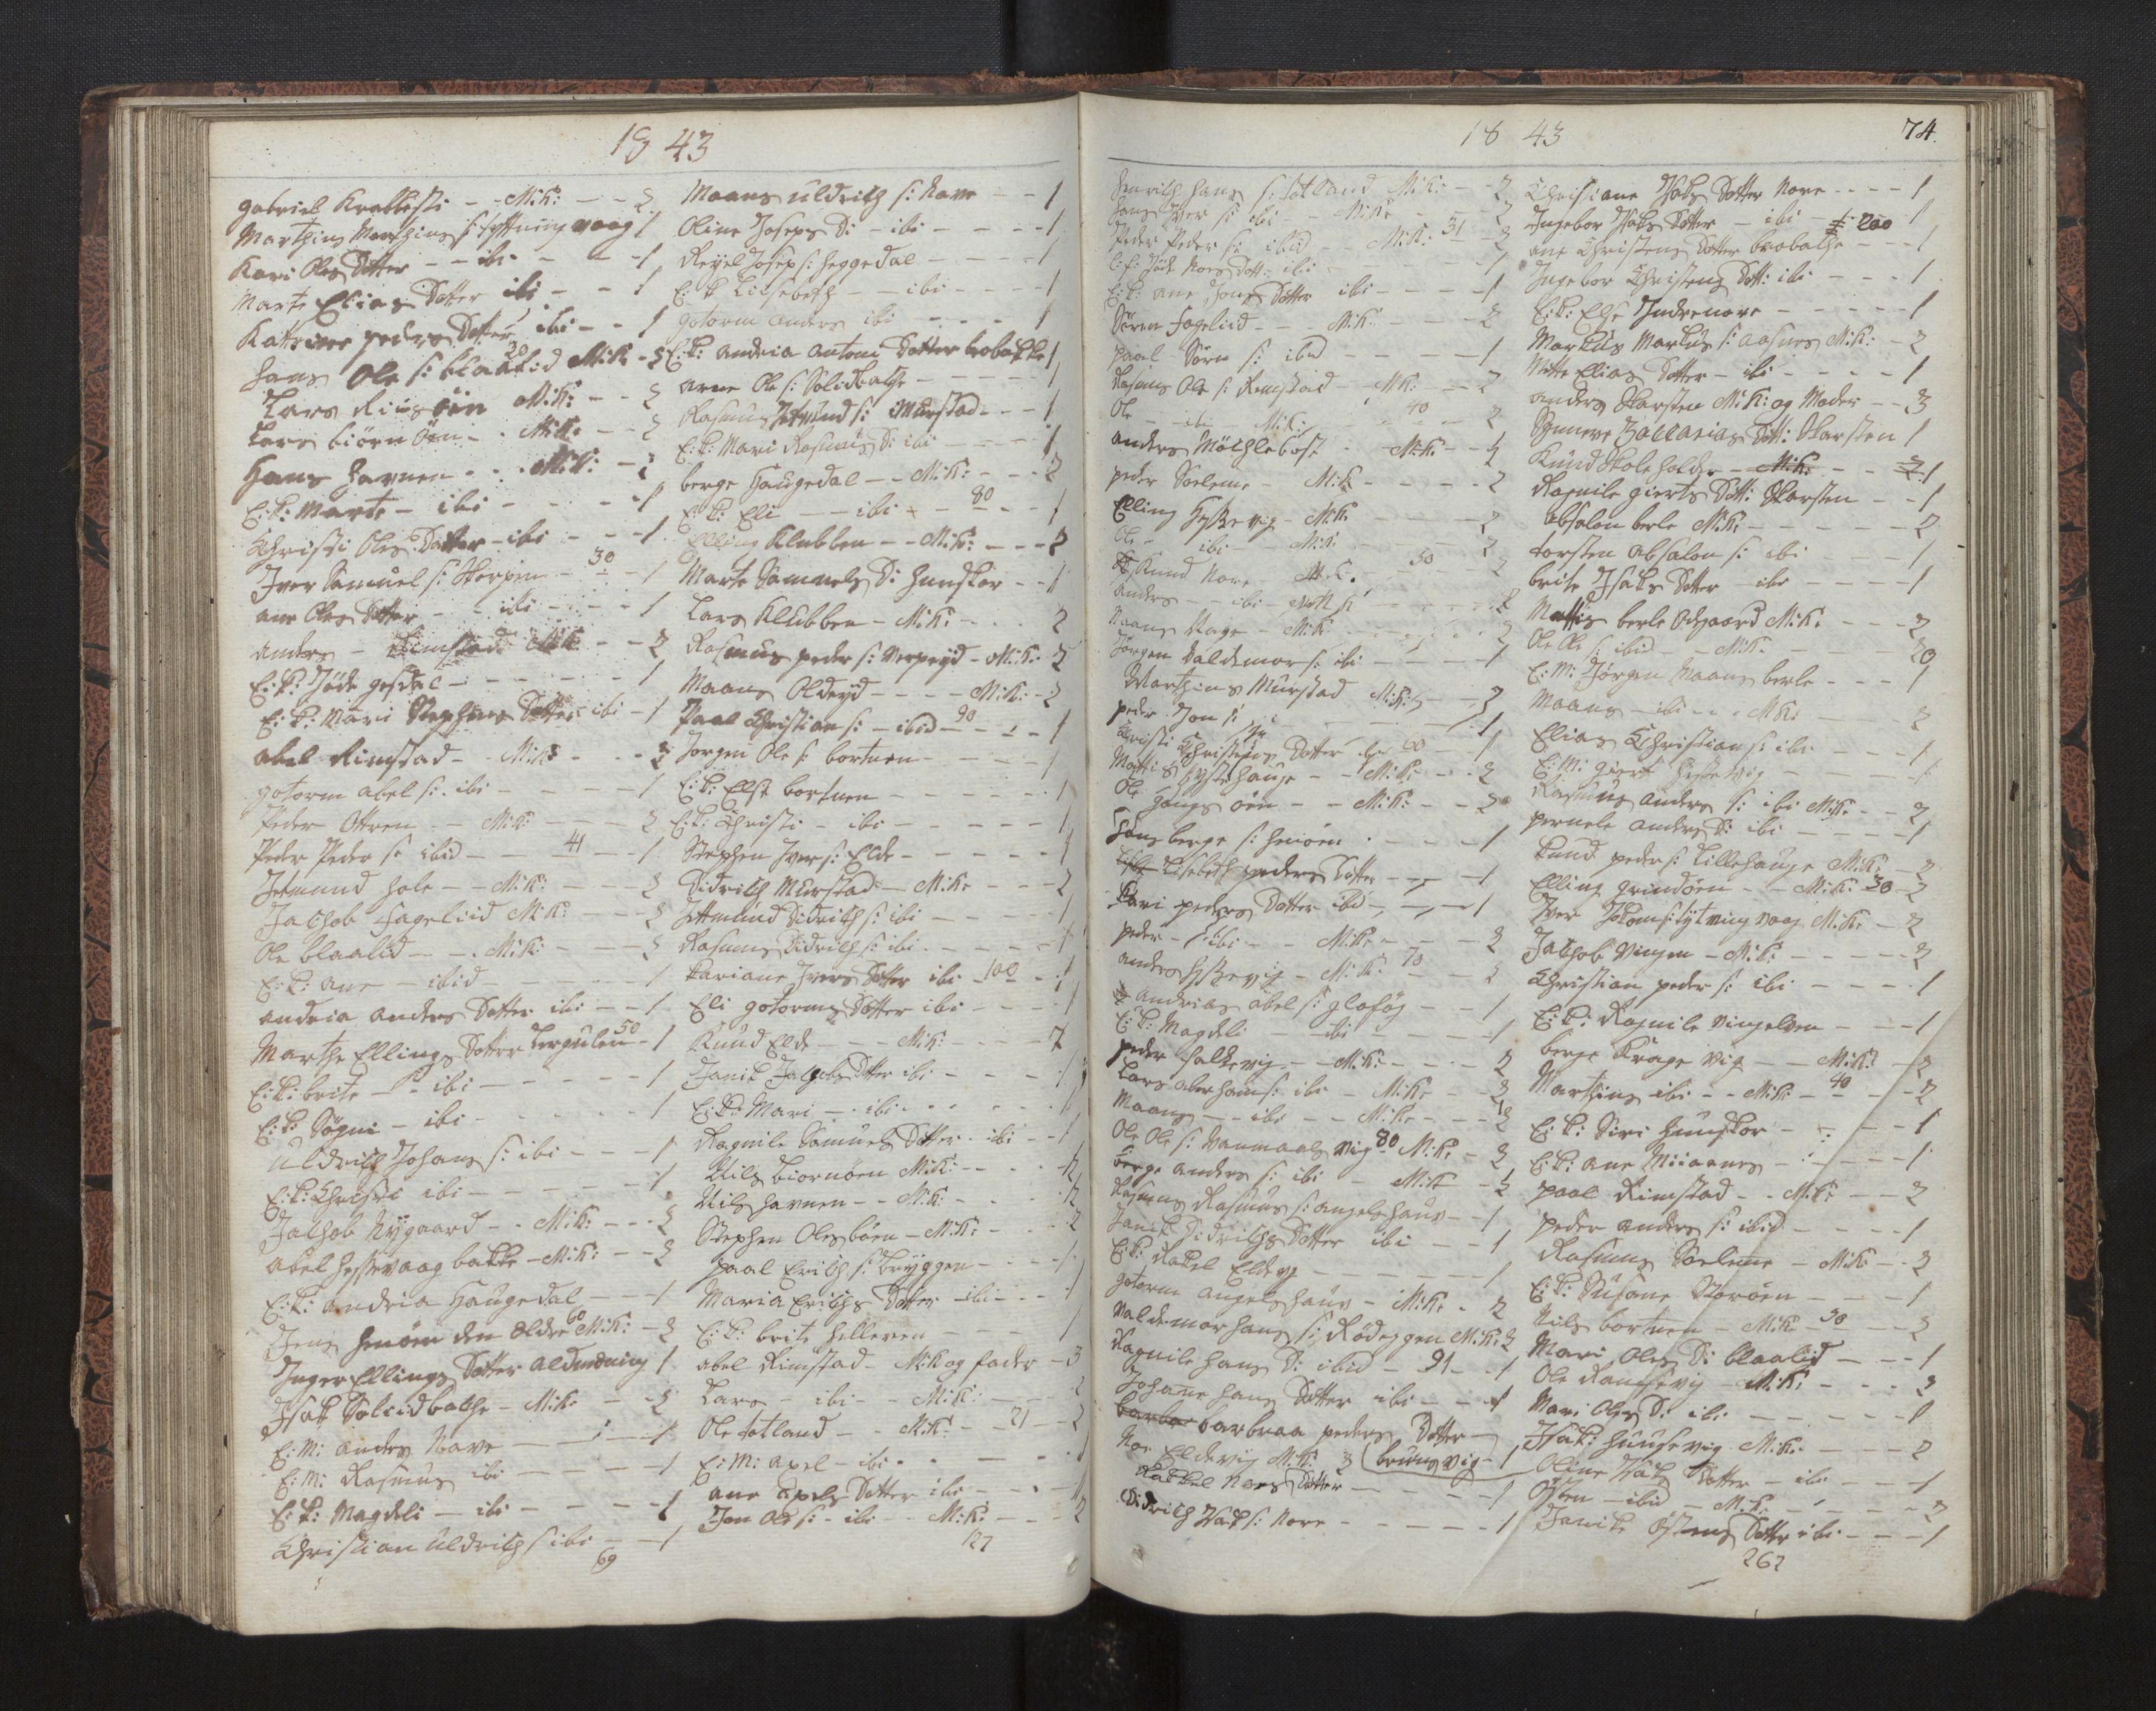 1843
gabriel Krabbesti - - M: K: - - 2
Marthins Marthins s: tyttning vaag 1
Kari Oles Dotter - - ibi - - - 1
Marte Elias Dotter ibi - - 1
Kattrine peders Dotter ibi - - 1
hans Ole s: blaalid 20 M: K: - 2
Lars Riis öen M: K: - - 2
Lars biörn öen - M: K: - - 2
Hans havnen - - M: K: - 2
E: K: Marte - ibi - - - - 1
Christi Oles Dotter - ibi - - - 1
Iver Samuel s: Skorpen - 30 - 1
ane Oles Dotter - - ibi - - - 1
anders - Rimstad M: K: - - 2
E: K: Jöde gosdal - - - - 1
E: K: Mari Stephens Dotter ibi - 1
abel Rimstad - M: K: - - - 2
gotorm abel s: ibi - - - - 1
Peder Ottren - M: K: - - - 2
Peder Peder s: ibid - - 41 - - 1
Jetmund hole - - M: K: - - - 2
Jachob fagelid M: K: - - - 2
Ole blaalid - - M: K: - - - 2
E: K: ane - ibid - - - - - 1
andria anders Dotter ibi - - - 1
Marthe Ellings Dotter Lergulen 50 - 1
E: K: brite - - ibi - - - - - 1
E: K: Sögni - ibi - - - - - 1
uldrich Johans s: ibi - - - 1
E: K: Christi ibi - - - - - 1
Jachob Nygaard - - M: K: - - - 2
abel hessevaag bakke - M: K: - - 2
E: K: andria Haugedal - - - 1
Jens henöen den Eldre 60 M: K: - 2
Inger Ellings Dotter aldendning 1
Isak Solcidbakke - M: K: - - 2
E: M: anders Nave - - - - 1
E: M: Rasmus ibi - - - - 1
E: K: Magdeli - ibi - - - - 1
Christian uldrich s ibi - - 1
69
Maans uldrich s: Nave - - 1
Oline Joseps D: - ibi - - - - 1
Reyel Josep s: heggedal - - - - 1
E: K: Liesebeth - - ibi - - - - 1
gotorm anders ibi - - - - 1
E: K: andria antoni Dotter brobakke 1
arne Ole s: Solidbakke - - - - 1
Rasmus Jetmund s: Murstad - - 1
E: K: Mari Rasmus D: ibi - - - 1
berge Haugedal - - M: K: - - - 2
E: K: Eli - - ibi - - 80 - - 1
Elling Klubben - - M: K: - - - 2
Marte Samuels D: hundskor - - 1
Lars Klubben - M: K: - - - 2
Rasmus peder s: Verpeyd - M: K: 2
Maans Oldeyd - - - - M: K: - 2
Paal Christian s: - ibid - 90 - - 1
Jorgen Ole s: bortnen - - - - - 1
E: K: Else bortnen - - - - - 1
E: K: Christi - ibi - - - - - 1
Stephen Iver s: Elde - - - - - 1
Didrich Murstad - M: K: - - - 2
Jettmund Didrich s: ibi - - - - 1
Rasmus Didrich s: ibi - - - - - 1
Kariane Ivers Dotter ibi - 100 - - 1
Eli gotorms Dotter ibi - - - - 1
Knud Elde - - - M: K: - - - 2
Janik Jachobs Dotter ibi - - - - 1
E: K: Mari - - ibi - - - - - 1
Ragnile Samuels Dotter - ibi - - 1
Nils biornöen M: K: - - - - 2
Nils havnen - - M: K: - - - - 2
Stephen Olesböen - M: K: - - - 2
paal Erich s: bryggen - - - - 1
Maria Erichs Dotter - ibi - - - 1
E: K: brite helleren - - - - 1
abel Rimstad - M: K: og fader - 3
Lars - ibi - - M: K: - - - 2
Ole totland - - M: K: - 21 - - 2
E: M: axel - ibi - - - - - 1
ane axels Dotter ibi - - - 1
Jon Ole s: - ibi - - M: K: - - 2
127
1843
74.
henrich hans s: totland M: K: - - 2
hans Iver s: ibi - - M: K: - - - 2
Peder Peder s: ibid - - M: K: 31 - 2
E: K: Jöde Noes Dott: ibi - - - - 1
E: K: ane Jons Dotter ibi - - - 1
Sören fagelid - - - M: K: - - - 2
paal Sörn s: ibid - - - - - 1
Rasmus Ole s: Remstad - - M: K: - - 2
Ole - - ibi - M: K: - 40 - - 2
anders Möchlebost - M: K: - - 2
peder Sorleme - M: K: - - - - 2
Elling hessevig - M: K: - - - - 2
Ole - ibi - M: K: - - - 2
Knud Nore M: K: - - 50 - - 2
anders - - ibi - M: K: - - - - 2
Maans Nage - M: K: - - - - 2
Jörgen Valdemor s: ibi - - - - 1
Marthins Murstad M: K: - - - 2
peder Jon s: ibi - - - - 1
Christi Christens Dotter ibi 60 - 1
Mattis hyssehauge - - M: K: - - 2
Ole gangs öen - - M: K: - - 2
hans berge s: henöen - - - - - 1
Lisebeth peders Dotter - - - - 1
Kari peders Dotter ibi - - - - 1
peder - - ibi - - M: K: - - - - 2
anders hessevig - M: K: - 70 - - 2
andrias abel s: gloföy - - - - 1
E: K: Magdeli - - ibi - - - - - 1
peder falkevig - - M: K: - - - 2
Lars aberham s: ibi - M: K: - - 2
Maans - - ibi - - M: K: - - - 2
Ole Ole s: Vanmaals vig 80 M: K: - 2
börge anders s: ibi - M: K: - 2
Rasmus Rasmus s: angelshaus - - 1
Janik Didrichs Dotter ibi - - 1
E: K: Rakel Eldevig - - - - - 1
gotorm angelshaus - M: K: - 2
Valdemor hans s: Rödeggen M: K: 2
Ragnile hans D: ibid - 91 - - 1
Johanne hans Dotter ibi - - - 1
barbraa peders Dotter -
bruns vig - 1
Noe Eldevig M: K: 2
Rakkel Noes Dotter - - - - - 1
Didrich Isak s: Nore - - - - - 1
Christiane Isaks Dotter Nore - - - - 1
Ingebor Isaks Dotter - ibi - - 1
200
ane Christens Dotter brobakke - - - 1
Ingebor Christens Dott: ibi - - - 1
E: K: Else Indrenore - - - - - 1
Markus Markus s: aasnes M: K: - 2
Mette Elias Dotter - ibi - - - - 1
anders Skarsten M: K: og Moder - - 3
Synneve Zaccarias Dott: Skarsten 1
Knud Skoleholder - M: K: - - 2 1
Ragnile gierts Dott: Skarsten - - 1
absolon berle M: K: - - - - - 2
torsten absalon s: ibi - - - - 1
brite Isaks Dotter - ibi - - - - 1
Mattis berle Odgaard M: K: - - - 2
Ole Ole s: ibid - - M: K: - - - 20
E: M: Jörgen Maans berle - - - 1
Maans - ibi - - - M: K: - - 2
Elias Christian s: ibi - - - - 1
E: M: giert hessevig - - - - - 1
Rasmus anders s: ibi M: K: - - 2
pernele anders D: ibi - - - - 1
Knud peder s: Lillehauge M: K: - 2
Elling grindöen - - M: K: 30 - 2
Iver Holoms: tytning vaag M: K: - 2
Jachob Vingen - M: K: - - - - - 2
Christian peder s: ibi - - - - 1
E: K: Ragnile Vingelven - - - 1
berge Krage vig - - M: K: - 2
Marthins ibi - - M: K: - 40 - - 2
E: K: Siri hundskor - - - - - 1
E: K: ane Miiaanes - - - - - 1
paal Rimstad - - M: K: - - - 2
peder anders s: ibid - - - - 1
Rasmus Sorleme - M: K: - - 2
E: K: Susane Storöen - - - - 1
Nils bortnen - M: K: - 50 - - 2
Mari Oles D: blaalid - - - 1
Ole Ramsevig - M: K: - - - 2
Mari Oles D: ibi - - - - - 1
Isak: huusevig M: K: - - - 2
Oline Isaks Dotter - ibi - - - 1
Östen - ibid - M: K: - - - - 2
Janike Östens Dotter ibi - - - 1
262